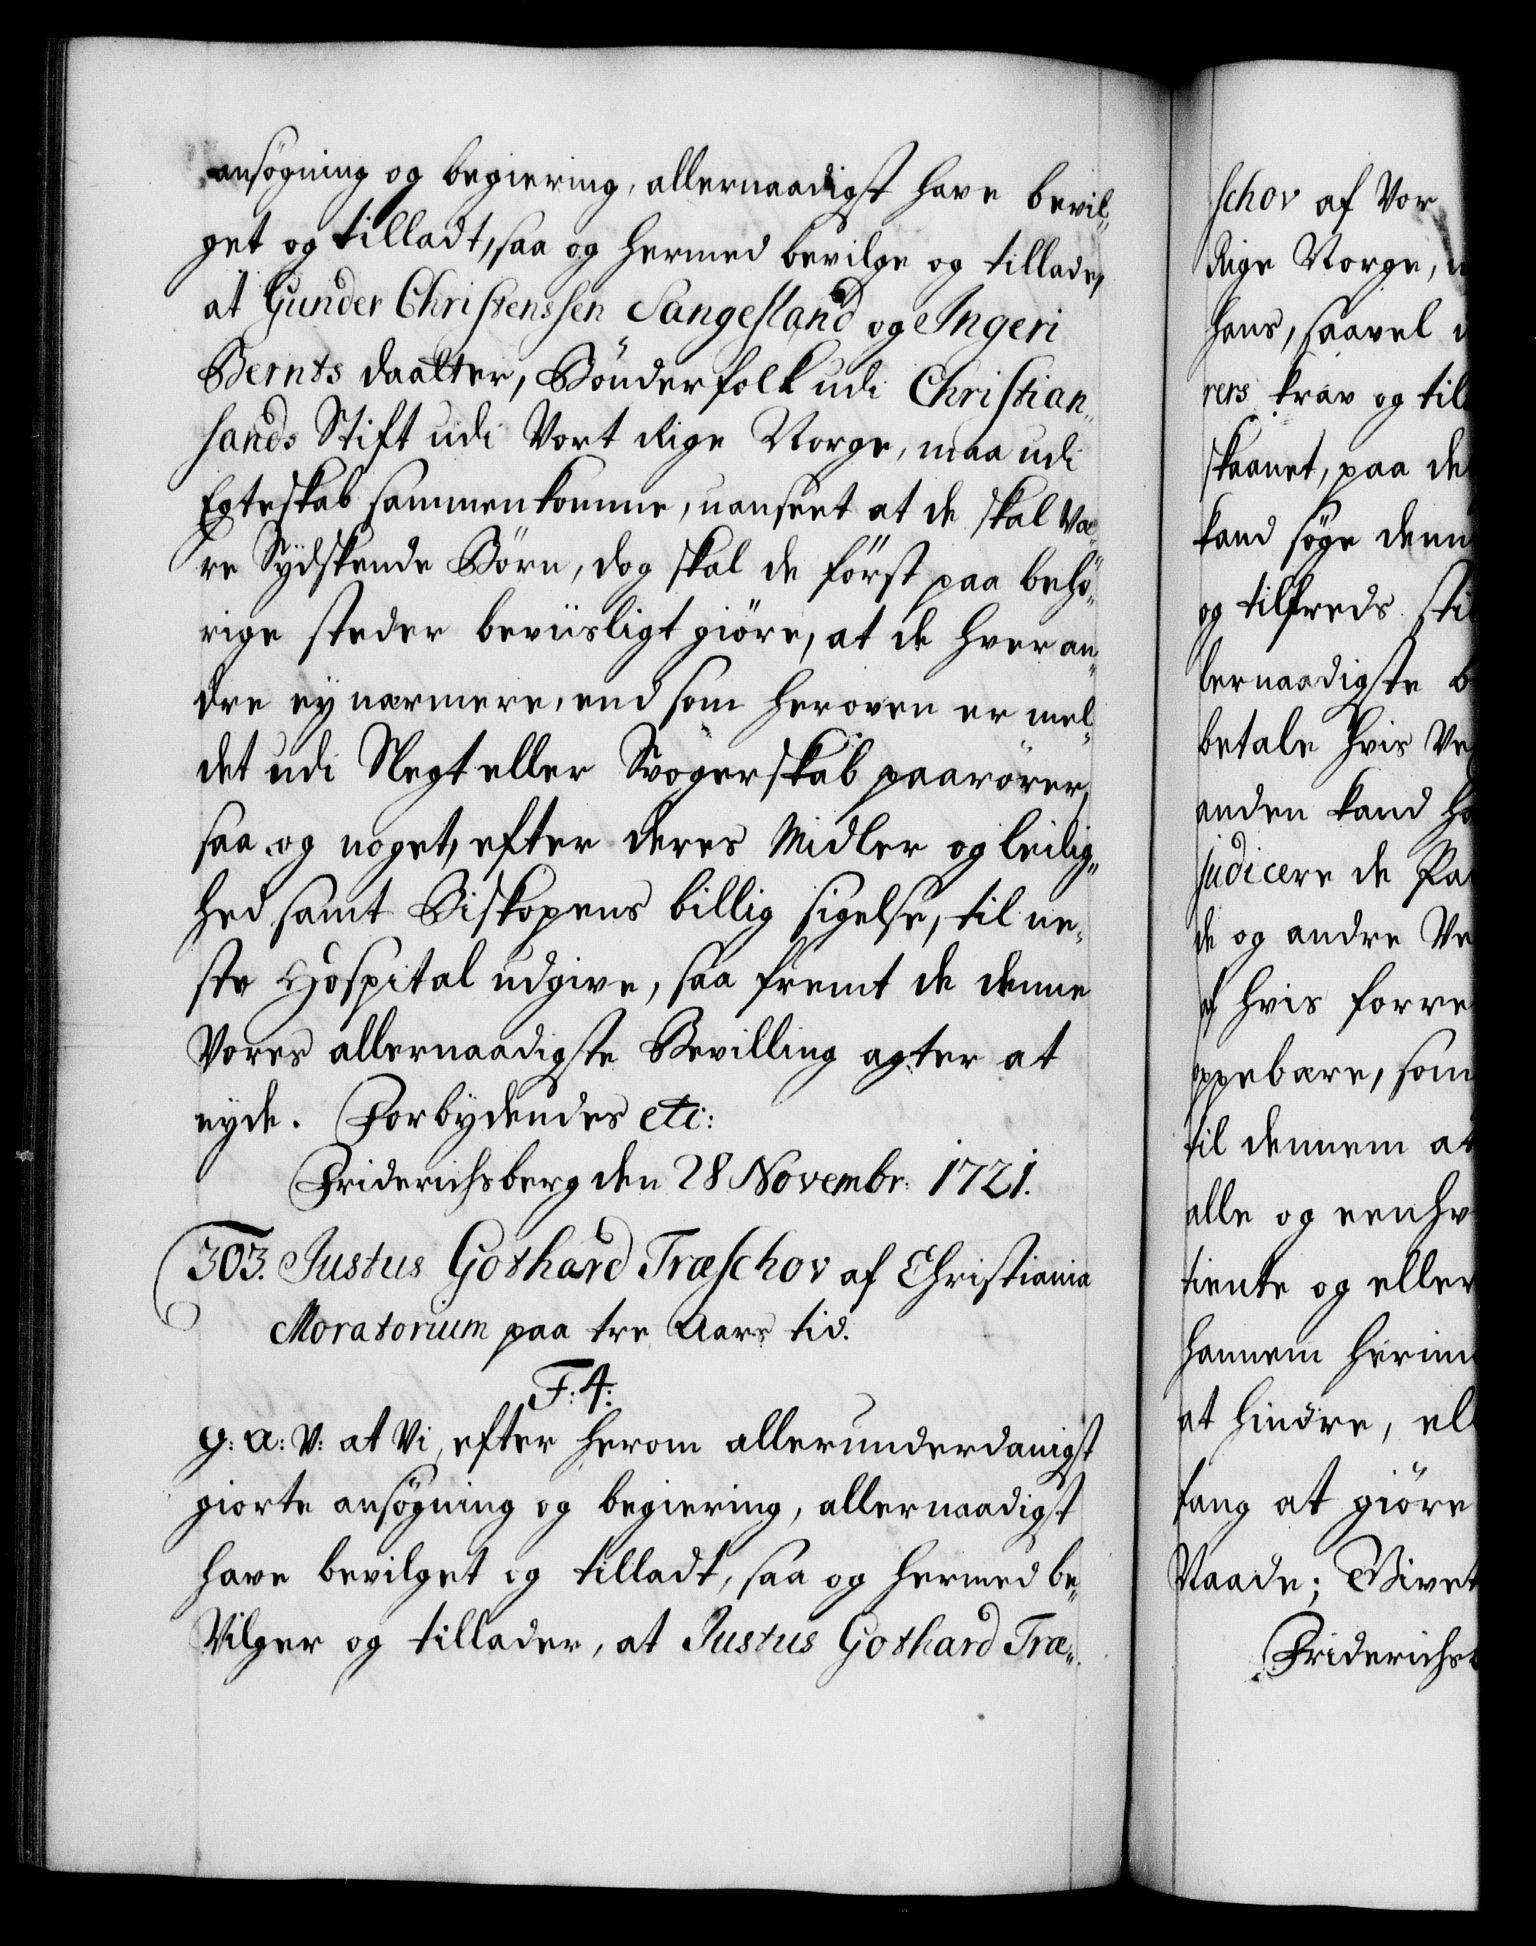 ansøgning og begiering, allernaadigst have bevil-
get og tilladt, saa og hermed bevilge og tillade,
at Gunder Christenssen Sangesland og Ingeri
Bernts daatter, Bönderfolk udi Christian-
sands Stift udi Vort Rige Norge, maa udi
Egteskab sammenkomme, uanseet at de skal væ-
re Sydskende Börn, dog skal de först paa behö-
rige steder beviisligt giöre, at de hver an-
dre ey nærmere, end som heroven er mel-
det udi Slegt eller Svogerskab paarörer,
saa og noget, efter deres Midler og leilig-
hed samt Biskopens billig sigelse, til ne-
ste Hospital udgive, saa fremt de denne
Vores allernaadigste Bevilling agter at
nyde. Forbydendes etc:
Friderichsberg den 28 Novembr: 1721.
303. Justus Gothard Træschov af Christiania
Moratorium paa tre Aars tid.
F: 4:
G: A: V: at Vi, efter herom allerunderdanigst
giorte ansögning og begiering, allernaadigst
have bevilget og tilladt, saa og hermed be-
vilger og tillader, at Justus Gothard Træ-
schov af Vor
Rige Norge,
hans, saavel
rers krav og til
skaanet, paa de
kand söge denn
og tilfreds sti
lernaadigste b
betale hvis Ve
anden kand ha
judicere de Pa
de og andre Ve
af hvis forre
oppebære, som
til dennem at
alle og eenhv
tiente og eller
hannem herim
at hindre, ell
fang at giöre
Naade; Givet
Friderichsb